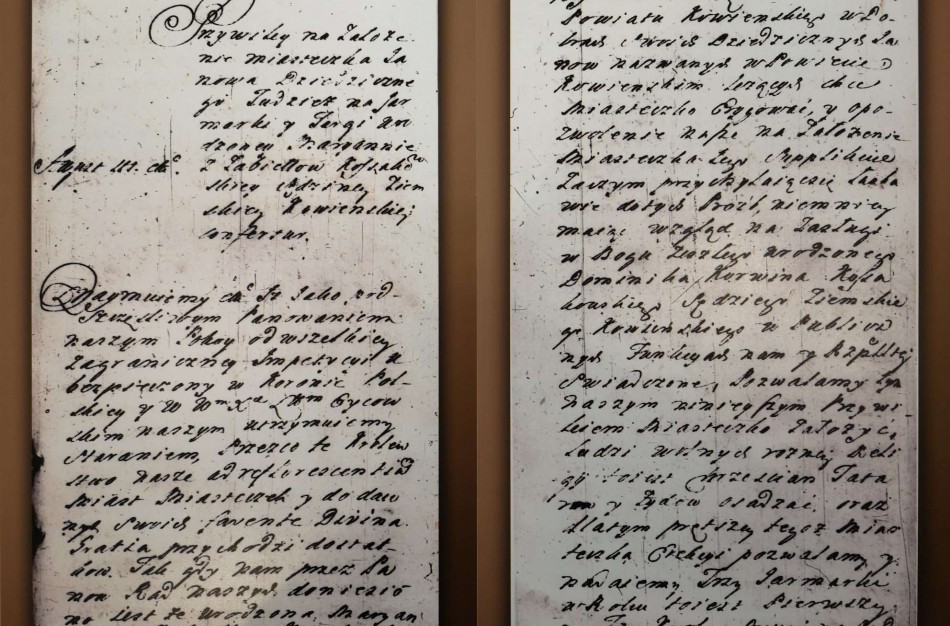 Przywiley na Założe
nie miasteczka Ja
nowa Dziedziczne
go Tudziez na Jar
marki y Targi Uro
dzoney Maryannie
August III. etc. z Zabiełłow Kossako
skiey Sędziney Ziem
skiey Kowienskiey
confertur.
Oznaymuiemy etc. Iz Jako pod
Szczęsliwym Panowaniem
naszym Pokoy od wszelkiey
Zagraniczney Impetycyi u
bezpieczony w Koronie Pol-
skiey y W Wm Xie Littm Oycow
skim naszym utrzymuiemy
Staraniem, Przez co te Krolew
stwo nasze ad reflorescentiam
Miast Miasteczek y do daw
nych swoich favente Divina
Gratia przychodzi dostat-
kow. Tak gdy nam przez Pa
now Rad naszych doniesio
no iest że urodzona Maryan
Powiatu Kowienskiego w Do-
brach swoich Dziedzicznych Ja
now nazwanych w Powiecie
Kowienskim lezących chce
Miasteczko Erygować, y o po-
zwolenie nasze na Założenie
Miasteczka tego Supplikuie
Zaczym przychylaiąc się łaska
wie do tych Prozb, niemniey
maiąc wzgląd na Zasługi
w Bogu Zeszłego urodzonego
Dominika Korwina Kossa
kowskiego Sędziego Ziemskie
go Kowienskiego w Publicz
nych Funkcyach nam y Rzplltej
swiadczone, Pozwalamy tym
naszym ninieyszym Przywi-
leiem Miasteczko Założyć,
Ludzi wolnych rozney Reli
gij to iest Chrzescian Tata
row y Żydow osadzać oraz
dla tym prętszey tegoz Mias
teczka Erekcyi pozwalamy y
nadaiemy Trzy Jarmarki
w Roku to iest Pierwszy